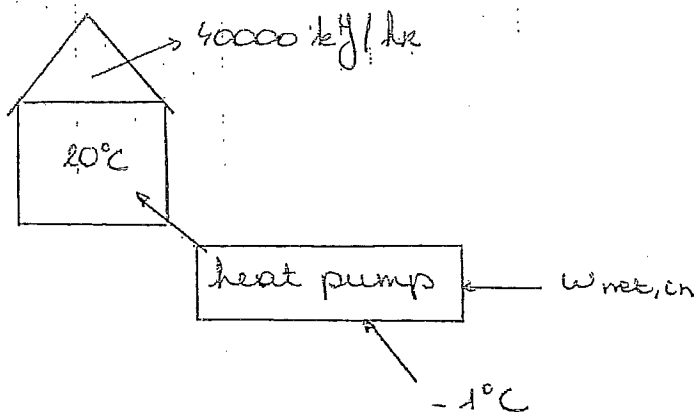 40000 kJ/hr
20°C
heat pump
Wnet,in
-1°C